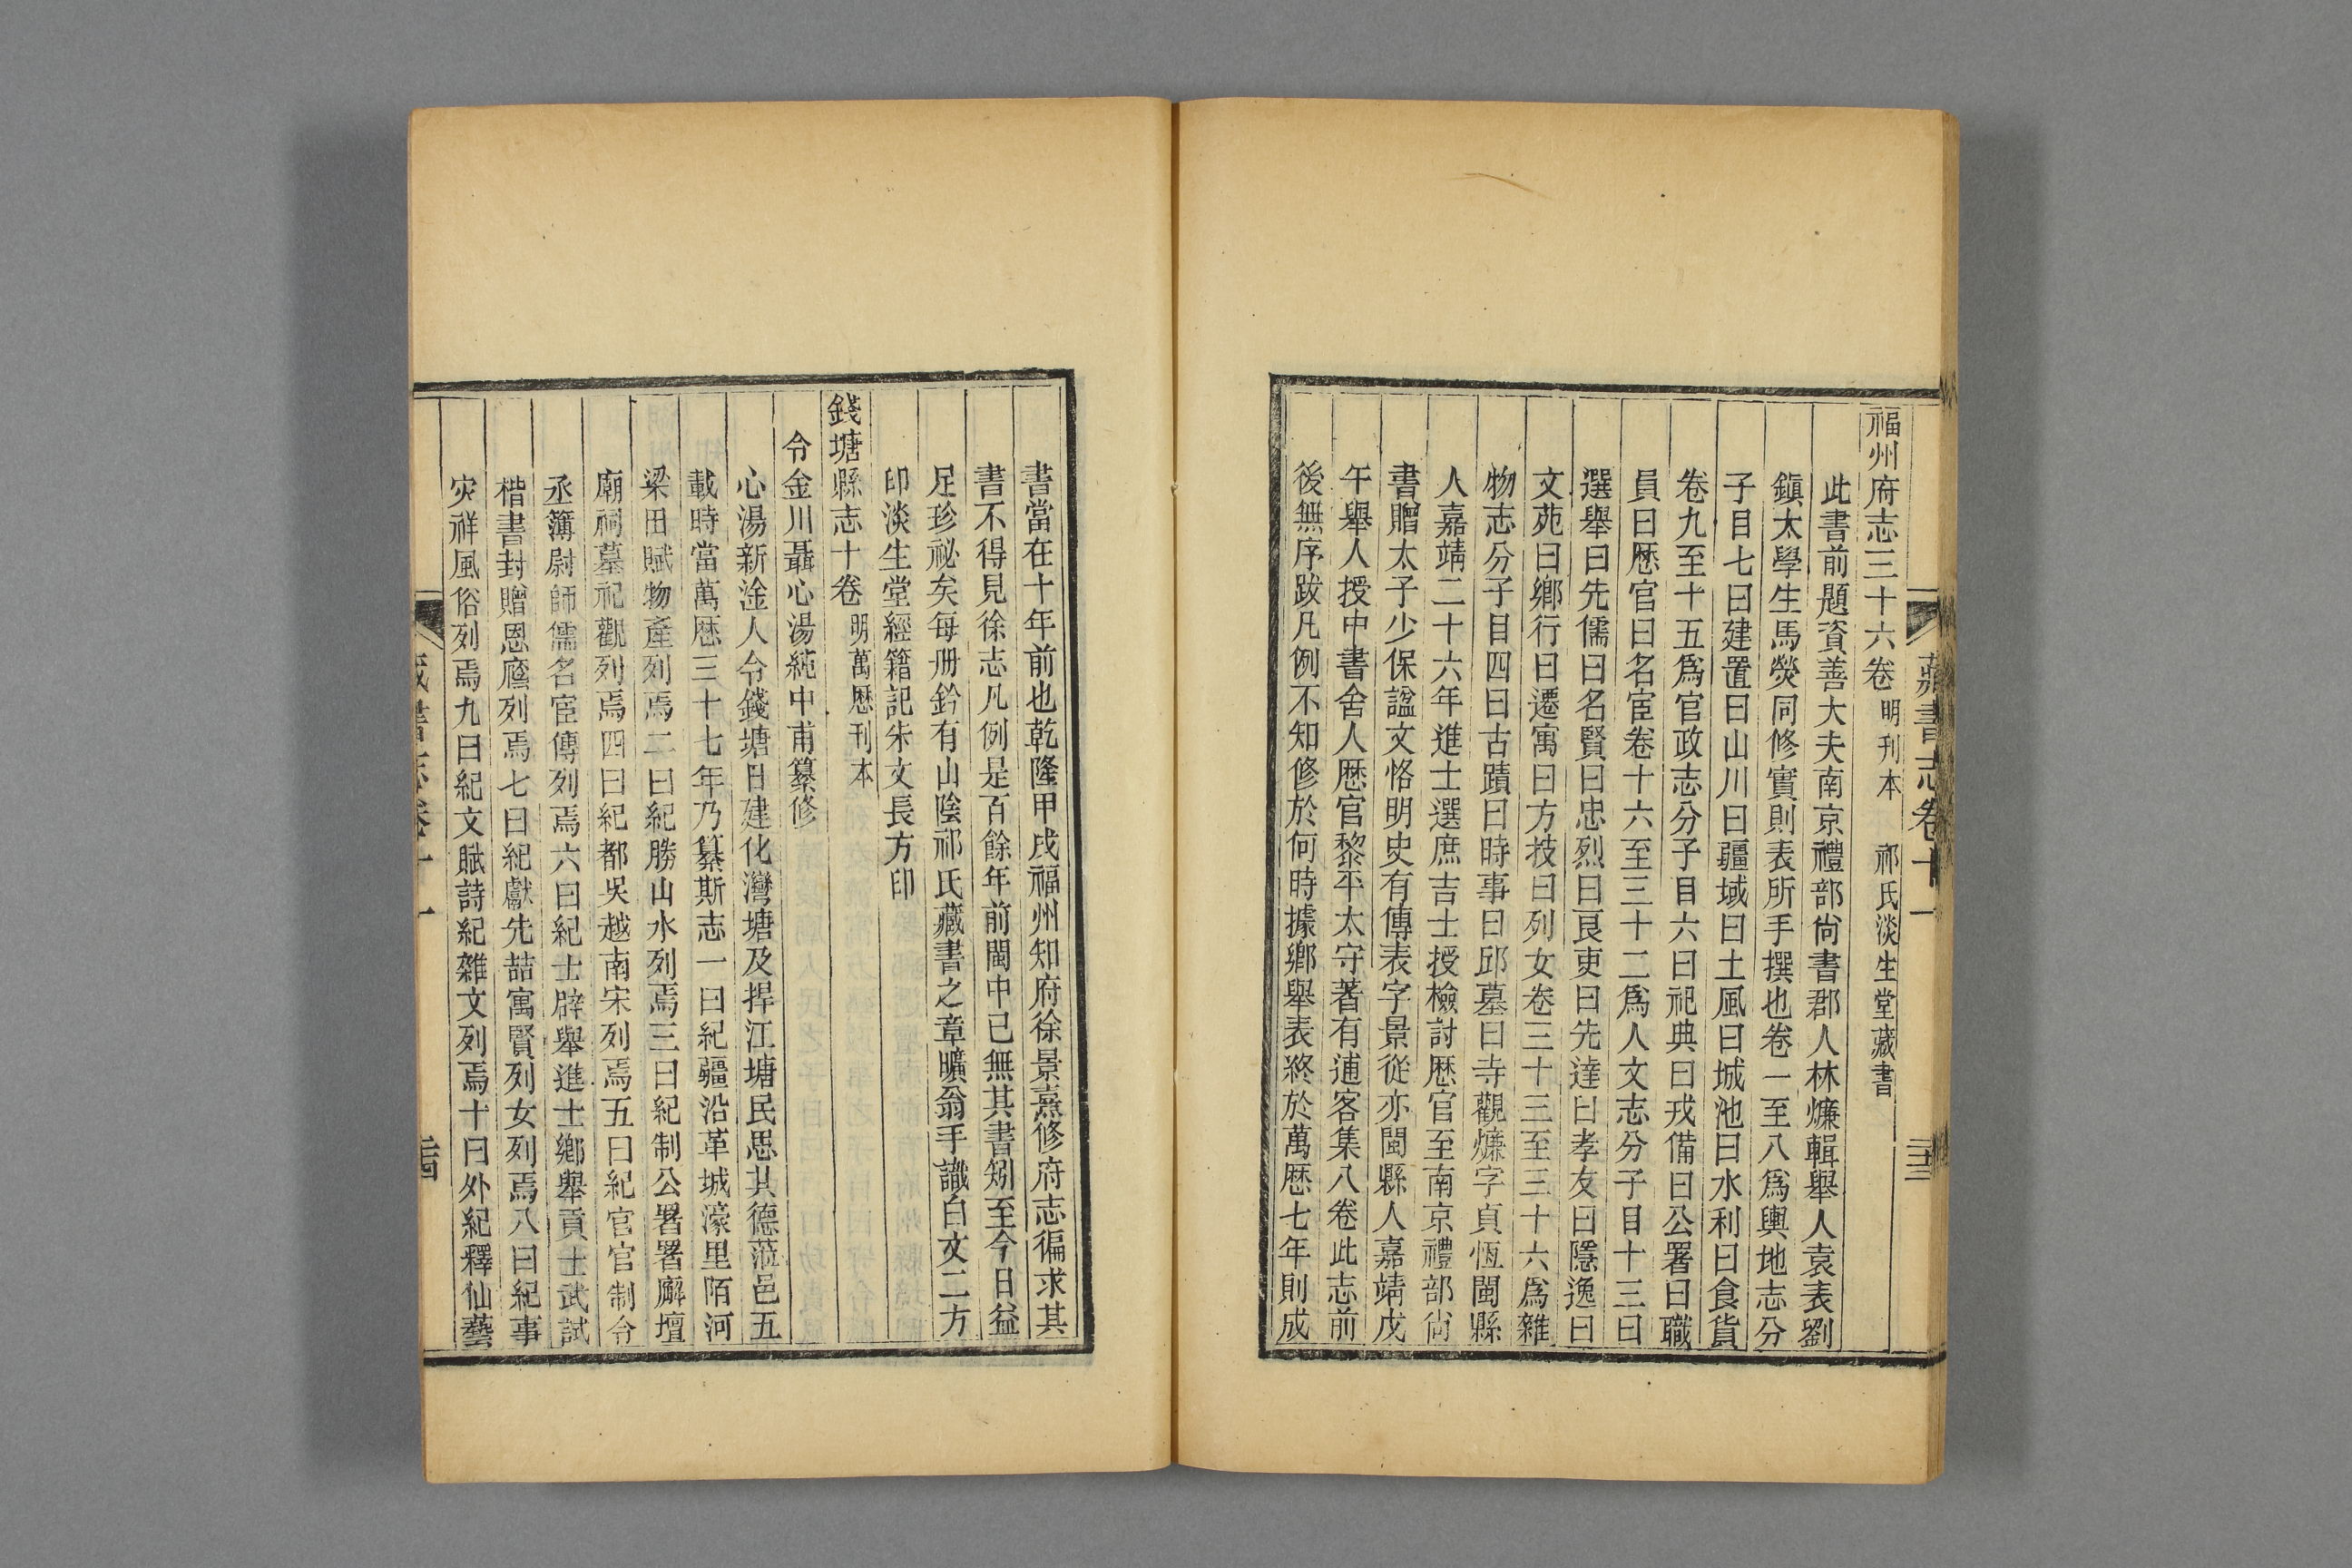 藏書志卷十一
三十三
福州府志三十六卷 明刊本 祁氏淡生堂藏書
此書前題資善大夫南京禮部尙書郡人林㷆輯舉人袁表劉
鎭太學生馬熒同修實則表所手撰也卷一至八爲輿地志分
子目七曰建置曰山川曰疆域曰土風曰城池曰水利曰食貨
卷九至十五爲官政志分子目六曰祀典曰戎備曰公署曰職
員曰歷官曰名宦卷十六至三十二爲人文志分子目十三曰
選舉曰先儒曰名賢曰忠烈曰良吏曰先達曰孝友曰隱逸曰
文苑曰鄉行曰遷寓曰方技曰列女卷三十三至三十六爲雜
物志分子目四曰古蹟曰時事曰邱墓曰寺觀㷆字貞恆閩縣
人嘉靖二十六年進士選庶吉士授檢討歷官至南京禮部尙
書贈太子少保謚文恪明史有傳表字景從亦閩縣人嘉靖戊
午舉人授中書舍人歷官黎平太守著有逋客集八卷此志前
後無序跋凡例不知修於何時據鄉舉表終於萬歷七年則成
書當在十年前也乾隆甲戌福州知府徐景熹修府志徧求其
書不得見徐志凡例是百餘年前閩中已無其書矧至今日益
足珍祕矣每册鈐有山陰祁氏藏書之章曠翁手識白文二方
印淡生堂經籍記朱文長方印
錢塘縣志十卷 明萬歷刊本
令金川聶心湯純中甫纂修
心湯新淦人令錢塘日建化灣塘及捍江塘民思其德蒞邑五
載時當萬歷三十七年乃纂斯志一曰紀疆沿革城濠里陌河
梁田賦物產列焉二曰紀勝山水列焉三曰紀制公署署廨壇
廟祠墓祀觀列焉四曰紀都吳越南宋列焉五曰紀官官制令
丞簿尉師儒名宦傳列焉六曰紀士辟舉進士鄉舉貢士武試
楷書封贈恩廕列焉七曰紀獻先喆寓賢列女列焉八曰紀事
灾祥風俗列焉九曰紀文賦詩紀雜文列焉十曰外紀釋仙藝
藏書志卷十一
三十四